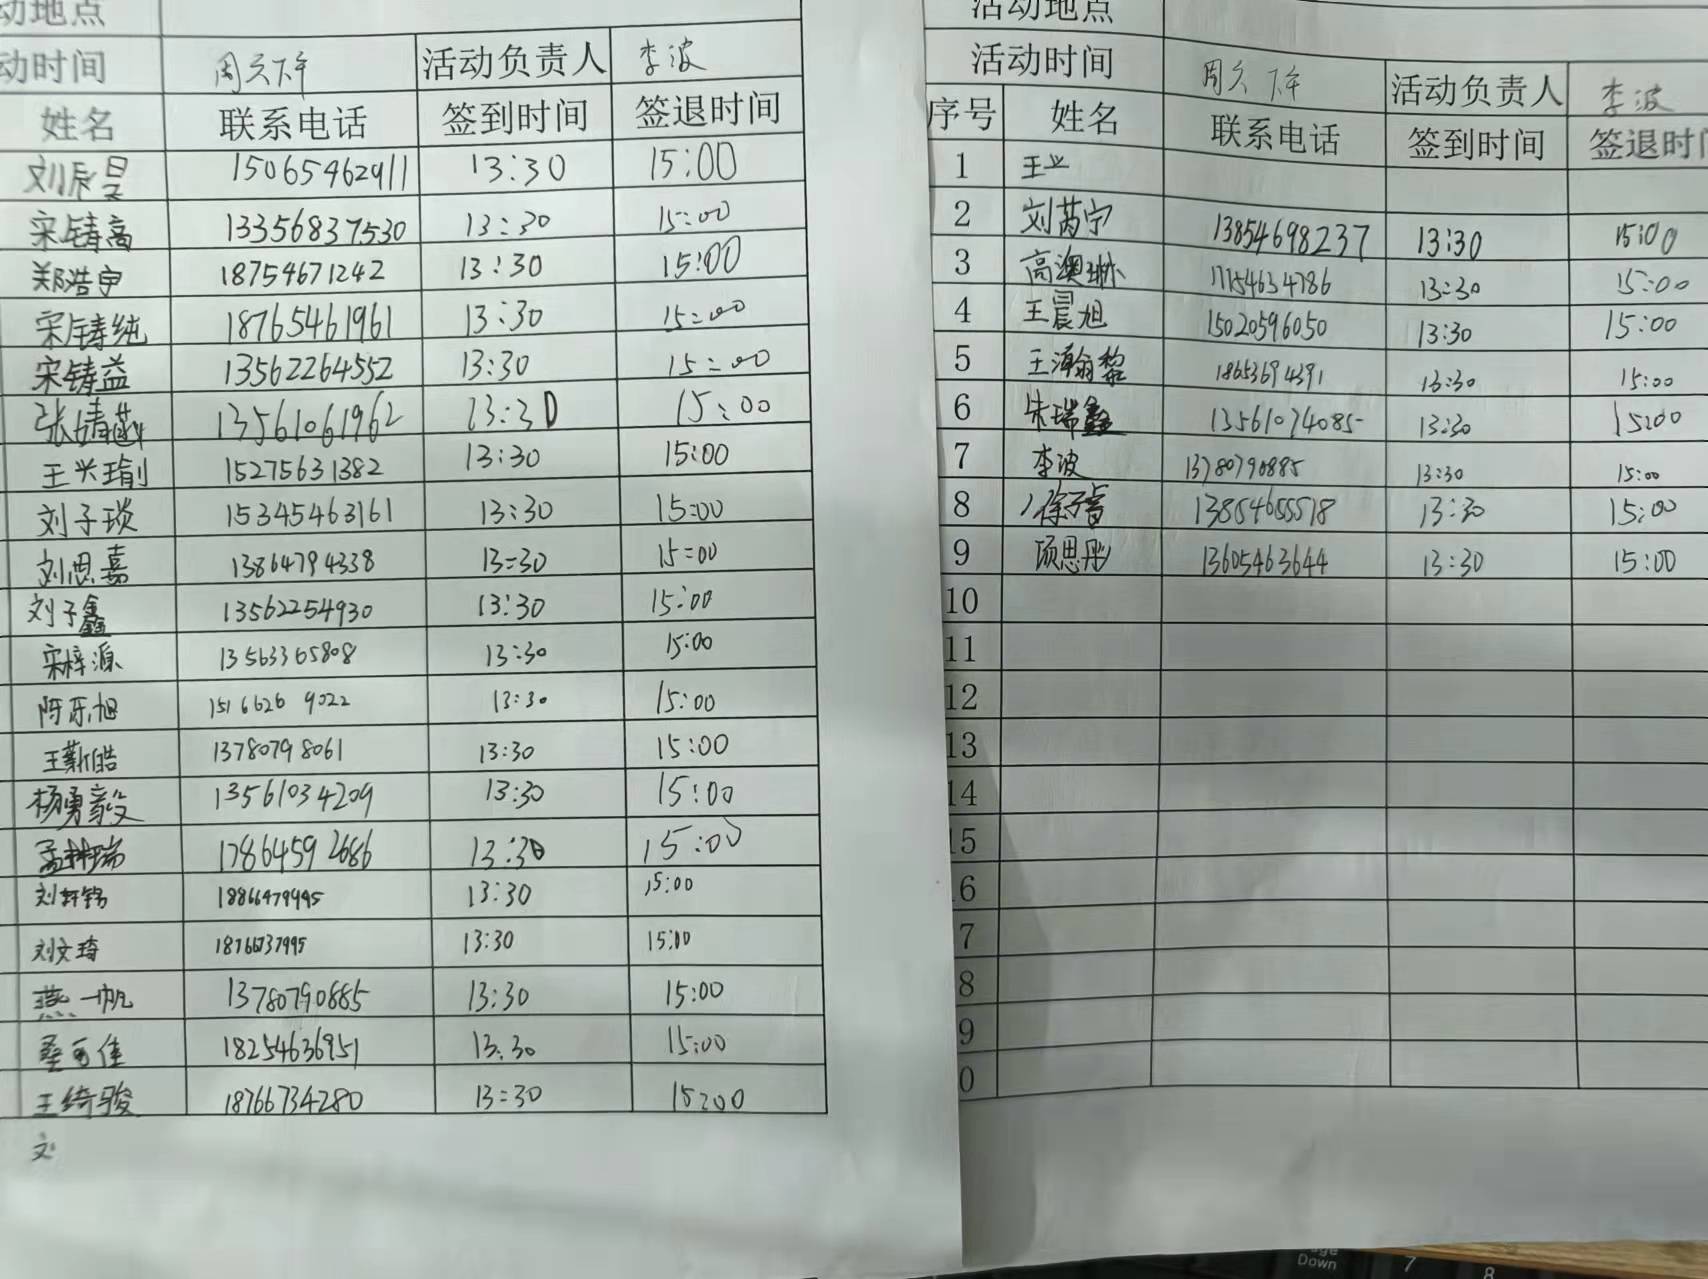 动地点
动时间 周六下午 活动负责人 李波
姓名 联系电话 签到时间 签退时间
刘辰昊 15065462911 13:30 15:00
宋铸高 13356837530 13:30 15:00
郑浩宇 18754671242 13:30 15:00
宋铸纯 18765461961 13:30 15:00
宋铸益 13562264552 13:30 15:00
张婧 13561061962 13:30 15:00
王兴瑜 15275631382 13:30 15:00
刘子琰 15345463161 13:30 15:00
刘思嘉 13864794338 13:30 15:00
刘子鑫 13562254930 13:30 15:00
宋梓源 13563365808 13:30 15:00
陈乐旭 15166269022 13:30 15:00
王新皓 13780798061 13:30 15:00
杨勇毅 13561034209 13:30 15:00
17864592686 13:30 15:00
刘轩铭 13:30 15:00
刘文琦 18766737995 13:30 15:00
燕一帆 13780790885 13:30 15:00
桑可佳 18254636951 13:30 15:00
王绮骏 18766734280 13:30 15:00
文
活动地点
活动时间 周六下午 活动负责人 李波
序号 姓名 联系电话 签到时间 签退时间
1 王业
2 刘芮宁 13854698237 13:30 15:00
3 高澳琳 17154634786 13:30 15:00
4 王晨旭 15020596050 13:30 15:00
5 王瀚黎 18653694391 13:30 15:00
6 朱瑞鑫 13561074085 13:30 15:00
7 李波 13780790885 13:30 15:00
8 徐子睿 13854655518 13:30 15:00
9 顾思彤 13605463644 13:30 15:00
10
11
12
13
14
15
6
7
8
9
0
Down 7 8